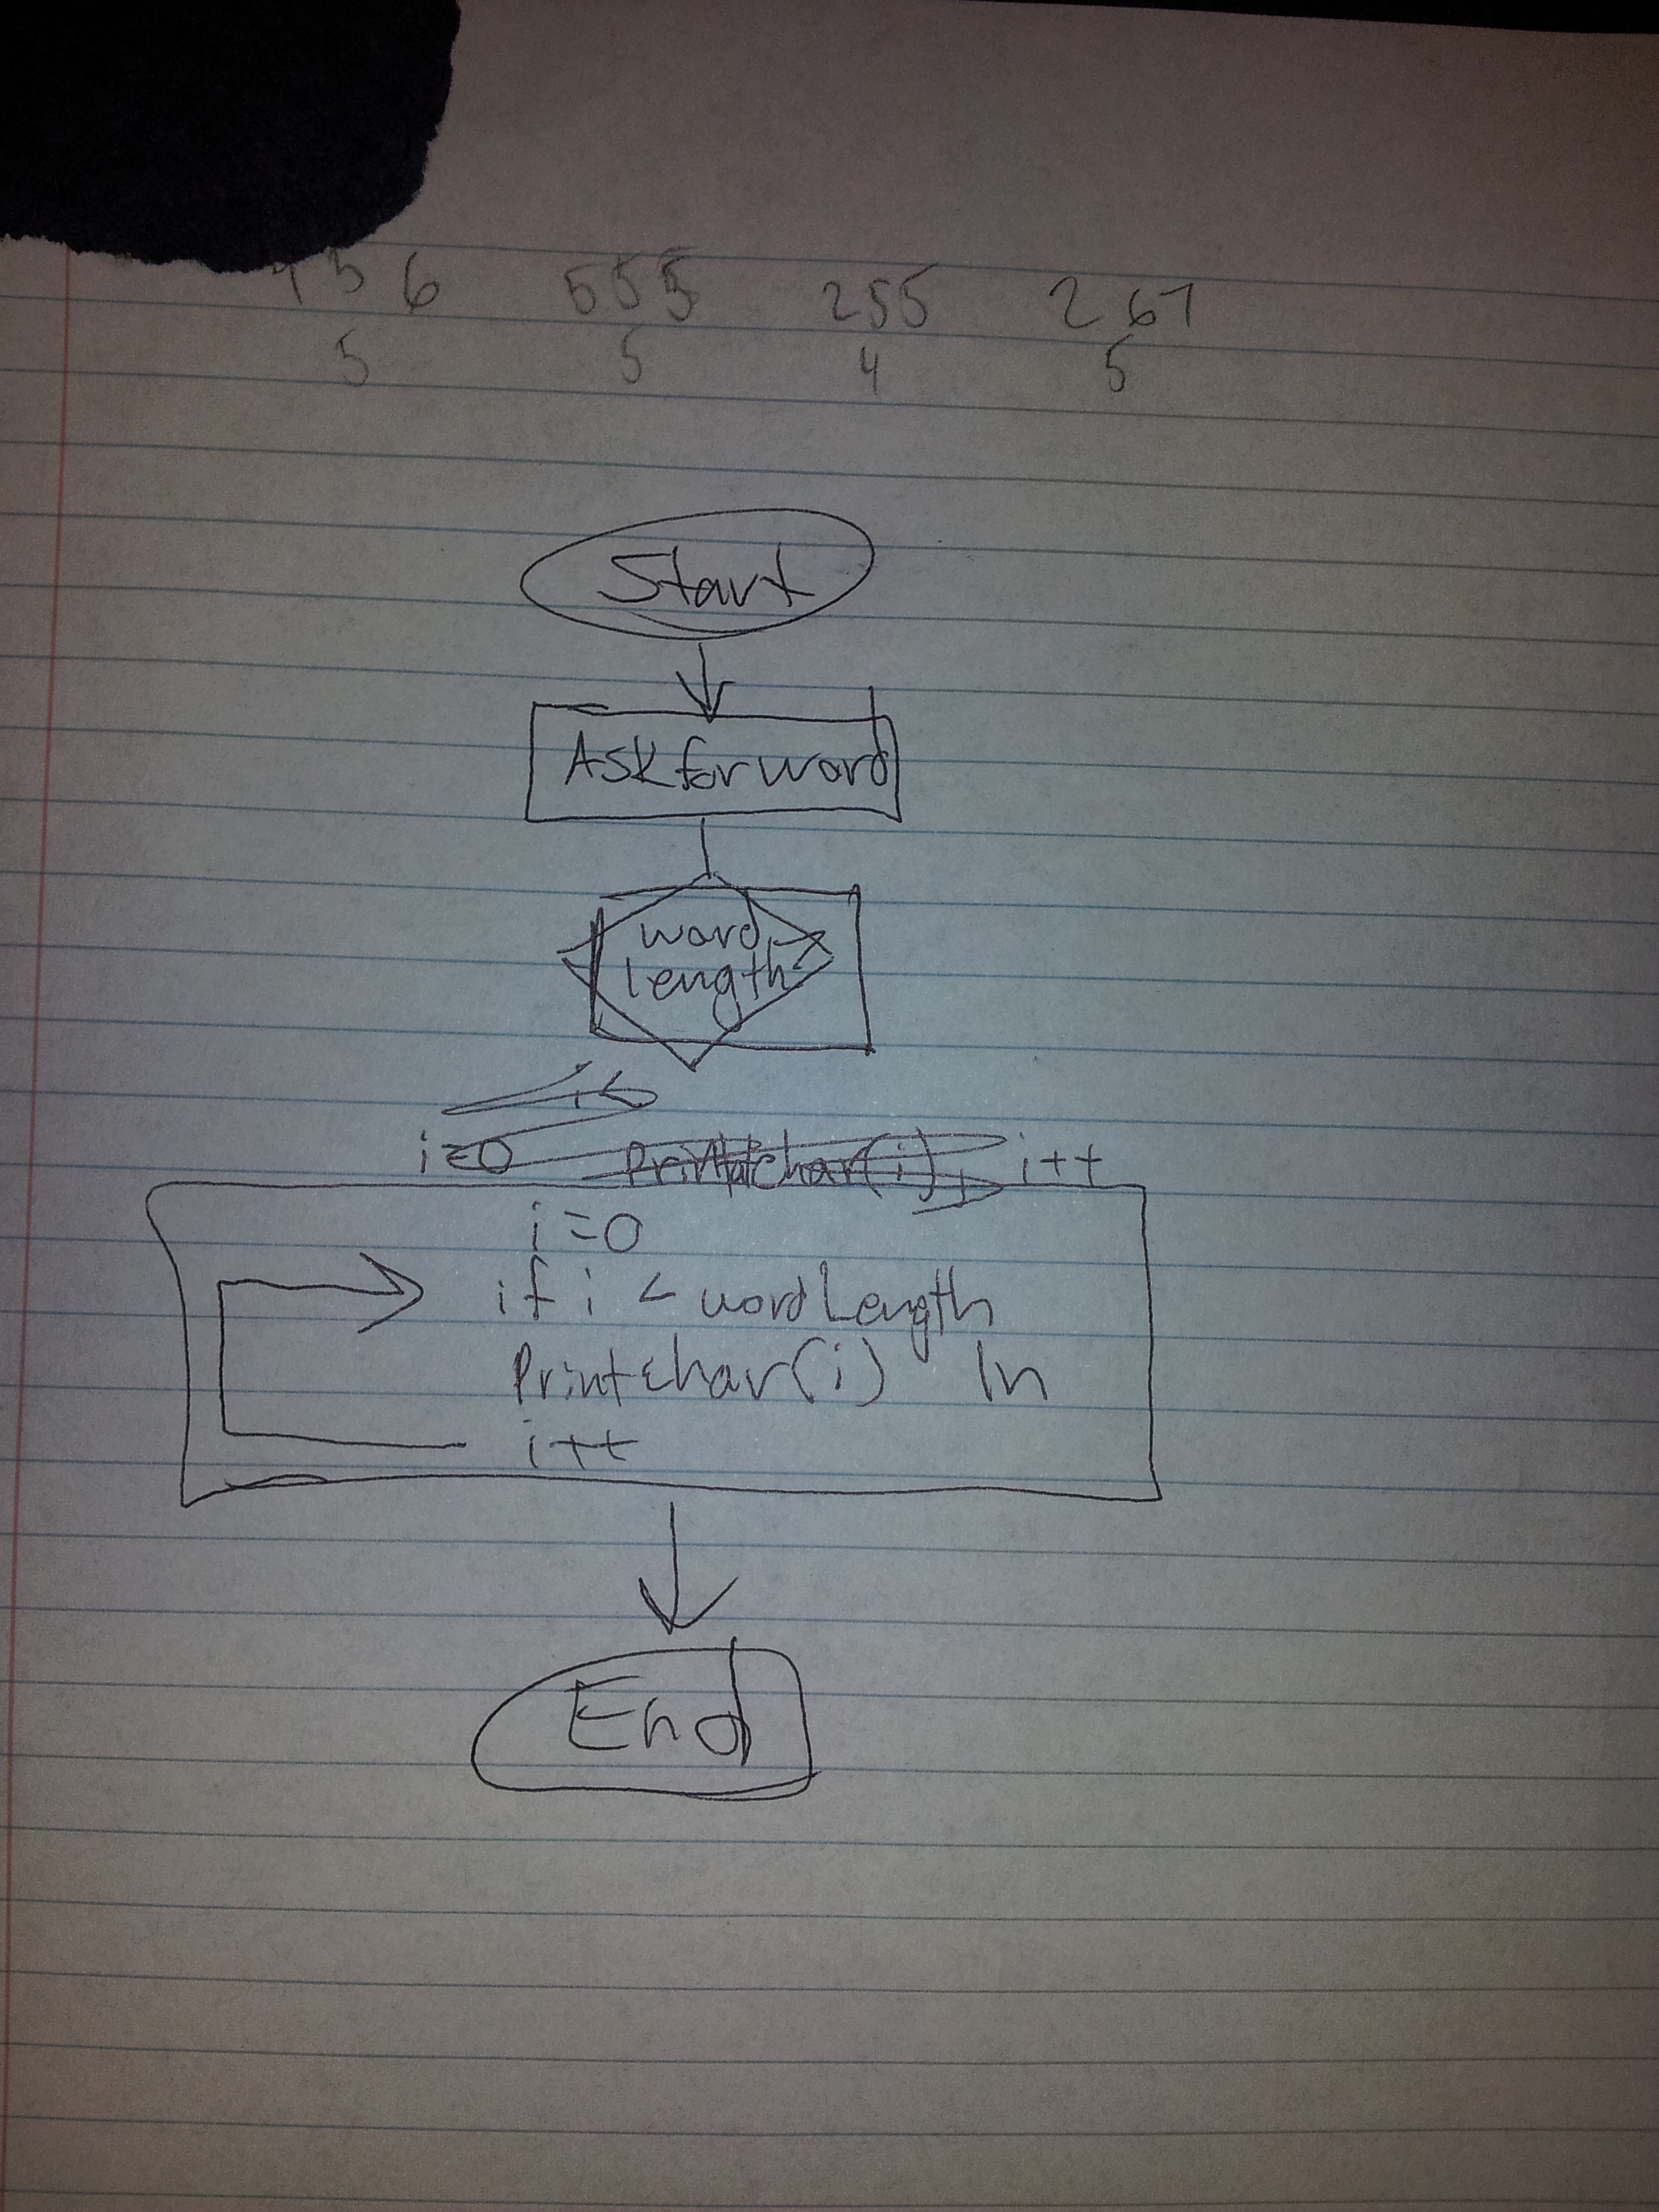 5 6 555 255 267
5 5 4 5
Start
Ask for word
word
length
i=0 Printchar(i) i++
i=0
if i < wordLength
Printchar(i) ln
i++
End